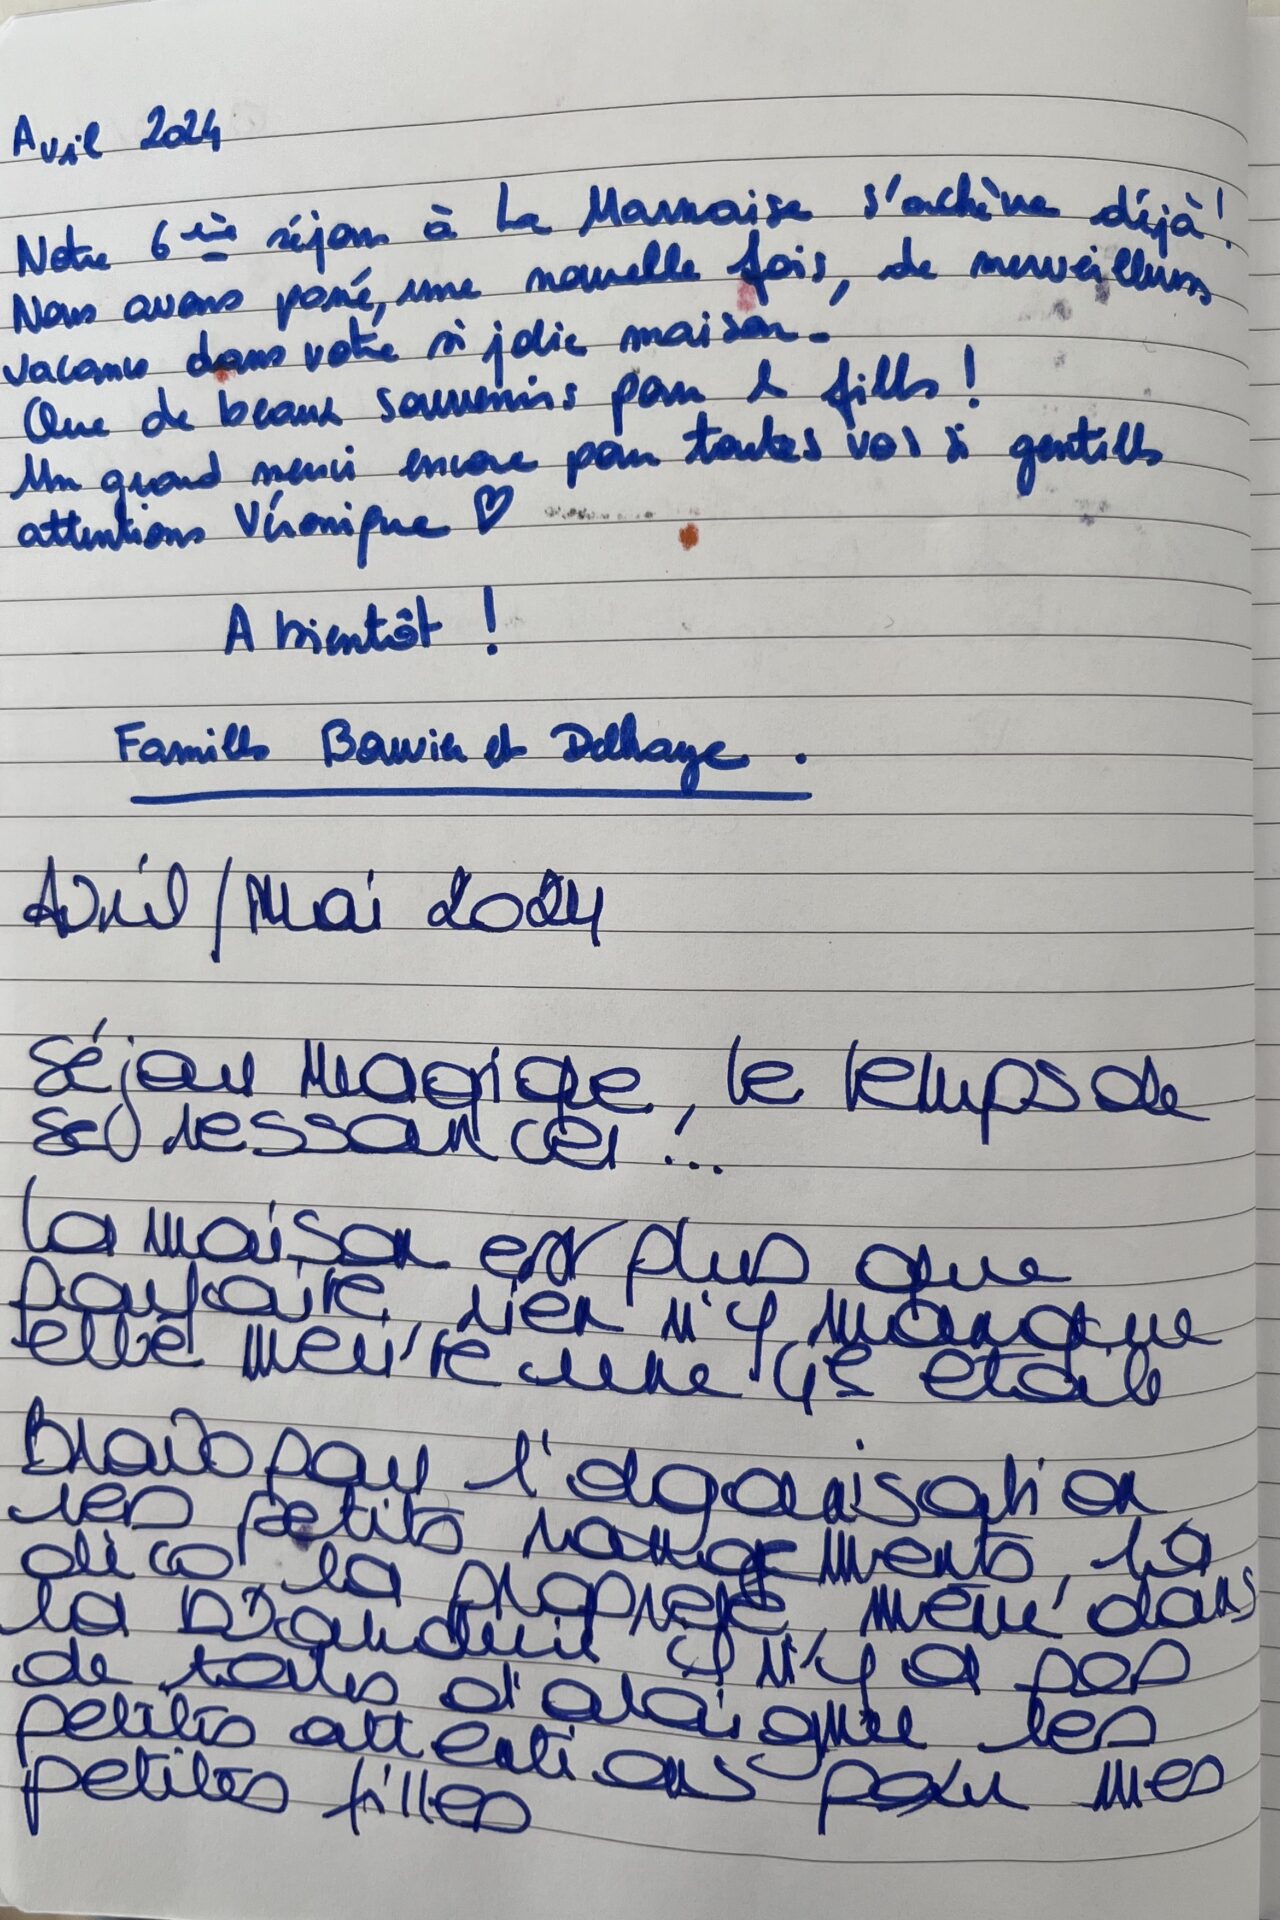 Avril 2024
Notre 6ème séjour à La Marnaise s'achève déjà !
Nous avons passé, une nouvelle fois, de merveilleuses
vacances dans votre si jolie maison.
Que de beaux souvenirs pour les filles !
Un grand merci encore pour toutes vos si gentilles
attentions Véronique ♡
A bientôt !
Familles Bouvier et Delhaye.
Avril / Mai 2024
Séjour Magique, le temps de
se ressourcer !...
La maison est plus que
parfaite, rien n'y manque
elle mérite une 4e étoile
Bravo pour l'organisation
les petits rangements, la
déco la propreté, même dans
la Buanderie il n'y a pas
de toiles d'araignée les
petites attentions pour mes
petites filles